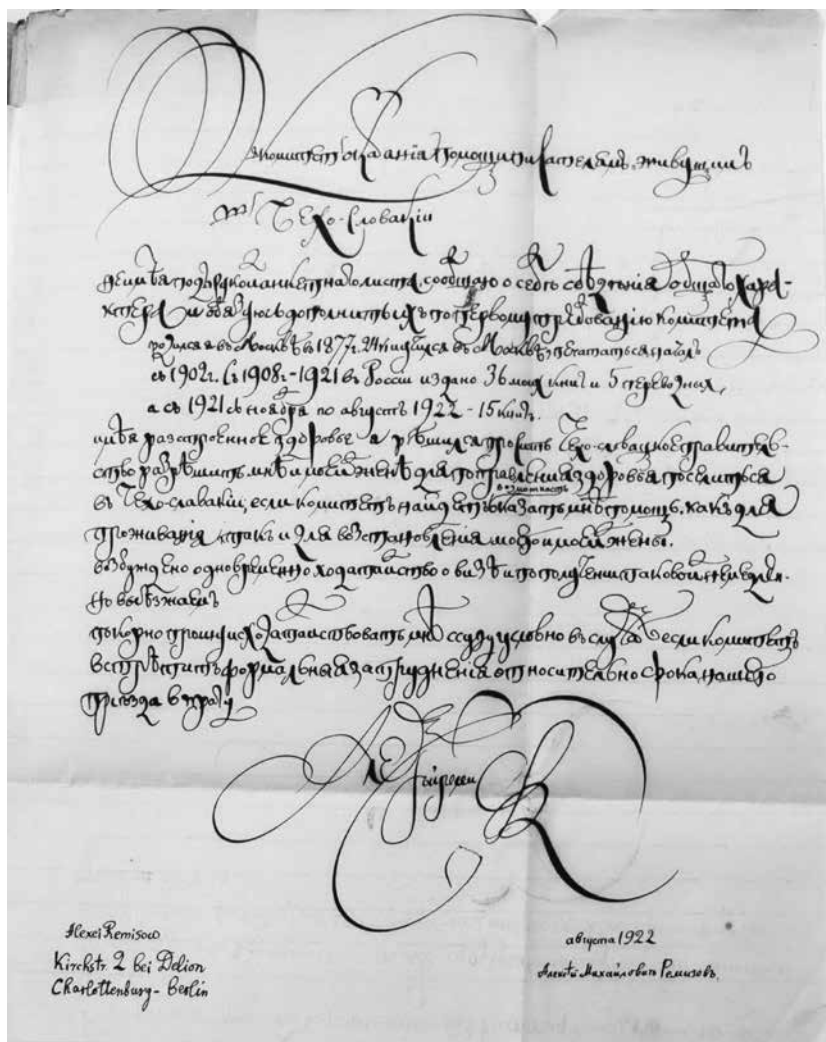 В комитетъ оказанія помощи писателямъ, живущимъ
въ Чехо-Словакіи
не имѣя подъ рукой анкетнаго листа, сообщаю о себѣ свѣдѣнія общаго харак-
тера и обязуюсь дополнить ихъ по первому требованію комитета
родился въ Москвѣ въ 1877 г. 24 учился въ Москвѣ печататься началъ
съ 1902 г. Съ 1908 г. - 1921 въ Россіи издано 36 моихъ книгъ и 5 переводныхъ,
а съ 1921 съ ноября по августъ 1922 - 15 книгъ.
имѣя разстроенное здоровье я рѣшился просить Чехо-словацкое правитель-
ство разрѣшить мнѣ и моей женѣ для поправленія здоровья поселиться
возможность
въ Чехо-славакіи, если комитетъ найдетъ оказать мнѣ помощь, какъ для
проживанія, такъ и для возстановленія моего и моей жены.
возбуждено одновременно ходатайство о визѣ и по полученіи таковой немедлен-
но выѣзжаемъ
покорно прошу исходатайствовать мнѣ ссуду условно въ случаѣ если комитетъ
встрѣтитъ формальныя затрудненія относительно срока нашего
пріѣзда въ Прагу
Alexei Remisow
Kirchstr. 2 bei Delion
Charlottenburg - Berlin
августа 1922
Алексѣй Михайловичъ Ремизовъ.